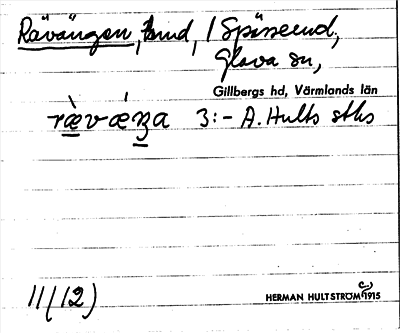 Rävängen, tmd, / Spässerud,
Glava sn,
Gillbergs hd, Värmlands län
rævæŋa 3:- A. Hults sths
11(12)
HERMAN HULTSTRÖM 1915